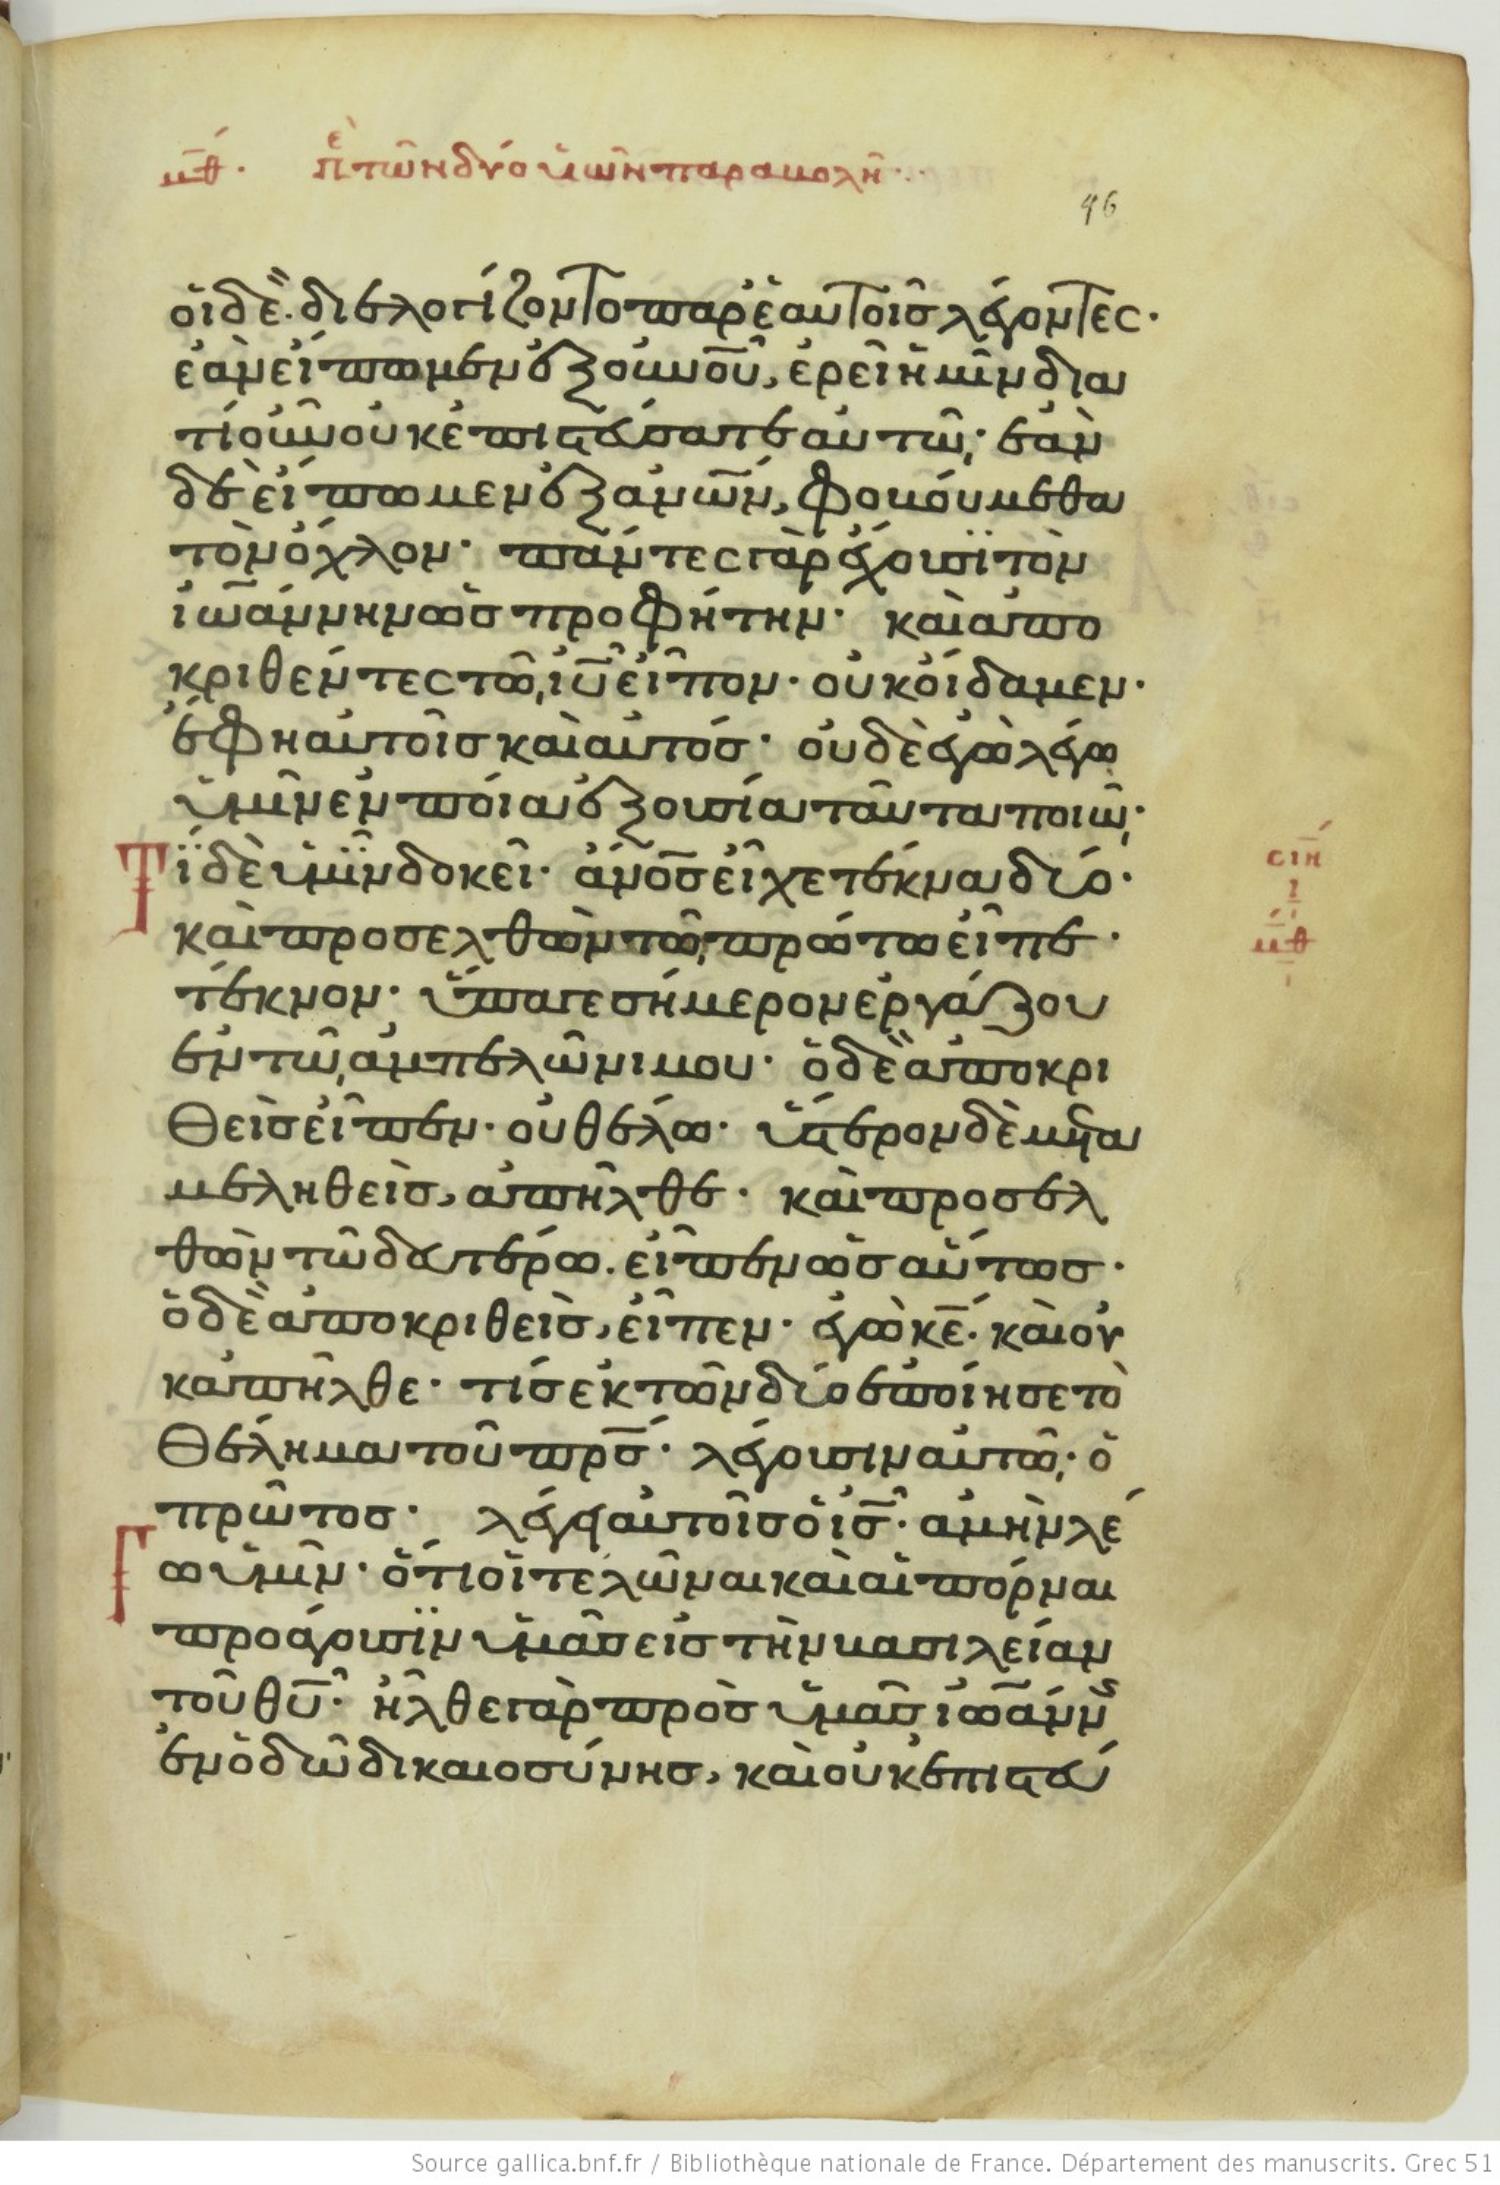 μθ΄. Πε τῶν δύο ὑιῶν παραβολή·
96
ὁι δὲ. διελογίζοντο παρ ἑαυτοῖς λέγοντες·
ἐὰν εἴπωμεν ἐξ οὐνοῦ, ἐρεῖ ἡμῖν δια
τί οὖν οὐκ ἐπιστεύσατε αὐτῶ; ἐὰν
δὲ εἴπωμεν ἐξ ἀνων, φοβούμεθα
τὸν ὄχλον· πάντες γὰρ ἔχουσϊ τὸν
ἰωάννην ὡς προφήτην· καὶ ἀπο
κριθέντες τῶ ιῦ εἶπον· οὐκ οἴδαμεν·
ἔφη αὐτοῖς καὶ αὐτός· οὐδὲ ἐγὼ λέγω
ὑμῖν ἐν ποία ἐξουσία ταῦτα ποιῶ·
Τί δὲ ὑμῖν δοκεῖ· ἄνος εἶχε τέκνα δύο·
καὶ προσελθὼν τῶ πρώτω εἶπε·
τέκνον· ὕπαγε σήμερον ἐργάζου
ἐν τῶ ἀμπελῶνι μου· ὁ δὲ ἀποκρι
θεὶς εἶπεν· οὐ θέλω· ὕστερον δὲ μετα
μεληθεὶς, ἀπῆλθε· καὶ προσελ
θὼν τῶ δευτέρω. εἶπεν ὡσαύτως·
ὁ δὲ ἀποκριθεὶς, εἶπεν· ἐγὼ κε· καὶ οὐ
κ ἀπῆλθε· τίς ἐκ τῶν δύο ἐποίησε τὸ
θέλημα τοῦ πρς· λέγουσιν αὐτῶ· ὁ
πρῶτος· λέγει αὐτοῖς ὁ ις· ἀμὴν λέ
Γω ὑμῖν· ὅτι οἱ τελῶναι καὶ αἱ πόρναι
προάγουσϊν ὑμᾶς εἰς τὴν βασιλείαν
τοῦ θυ· ἦλθε γὰρ πρὸς ὑμᾶς ἰωάννης
ἐν ὁδῶ δικαιοσύνης, καὶ οὐκ ἐπιστεύ
σιη
ι
μθ
Source gallica.bnf.fr / Bibliothèque nationale de France. Département des manuscrits. Grec 51